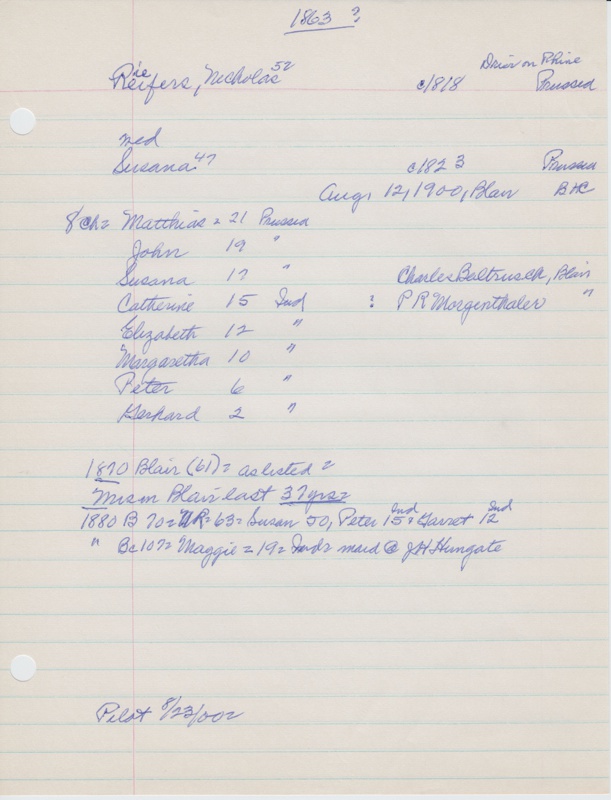 1863 ?
on Rhine
ie
Reifers, Nicholas 52 c1818 Prussia
md
Susana 47 c1823 Prussia
Aug. 12, 1900, Blair BHC
8 ch = Matthias = 21 Prussia
John 19 "
Susana 17 " Charles Baltrusch, Blair
Catherine 15 Ind : P R Morgenthaler "
Elizabeth 12 "
Margaretha 10 "
Peter 6 "
Gerhard 2 "
1870 Blair (61) = as listed =
Blair last 37 yrs =
1880 B 70 = NR = 63 = Susan 50, Peter 15 Ind = Garret 12 Ind
" Bc 107 = Maggie = 19 = Ind = maid @ J H Hungate
Pilot 8/23/002